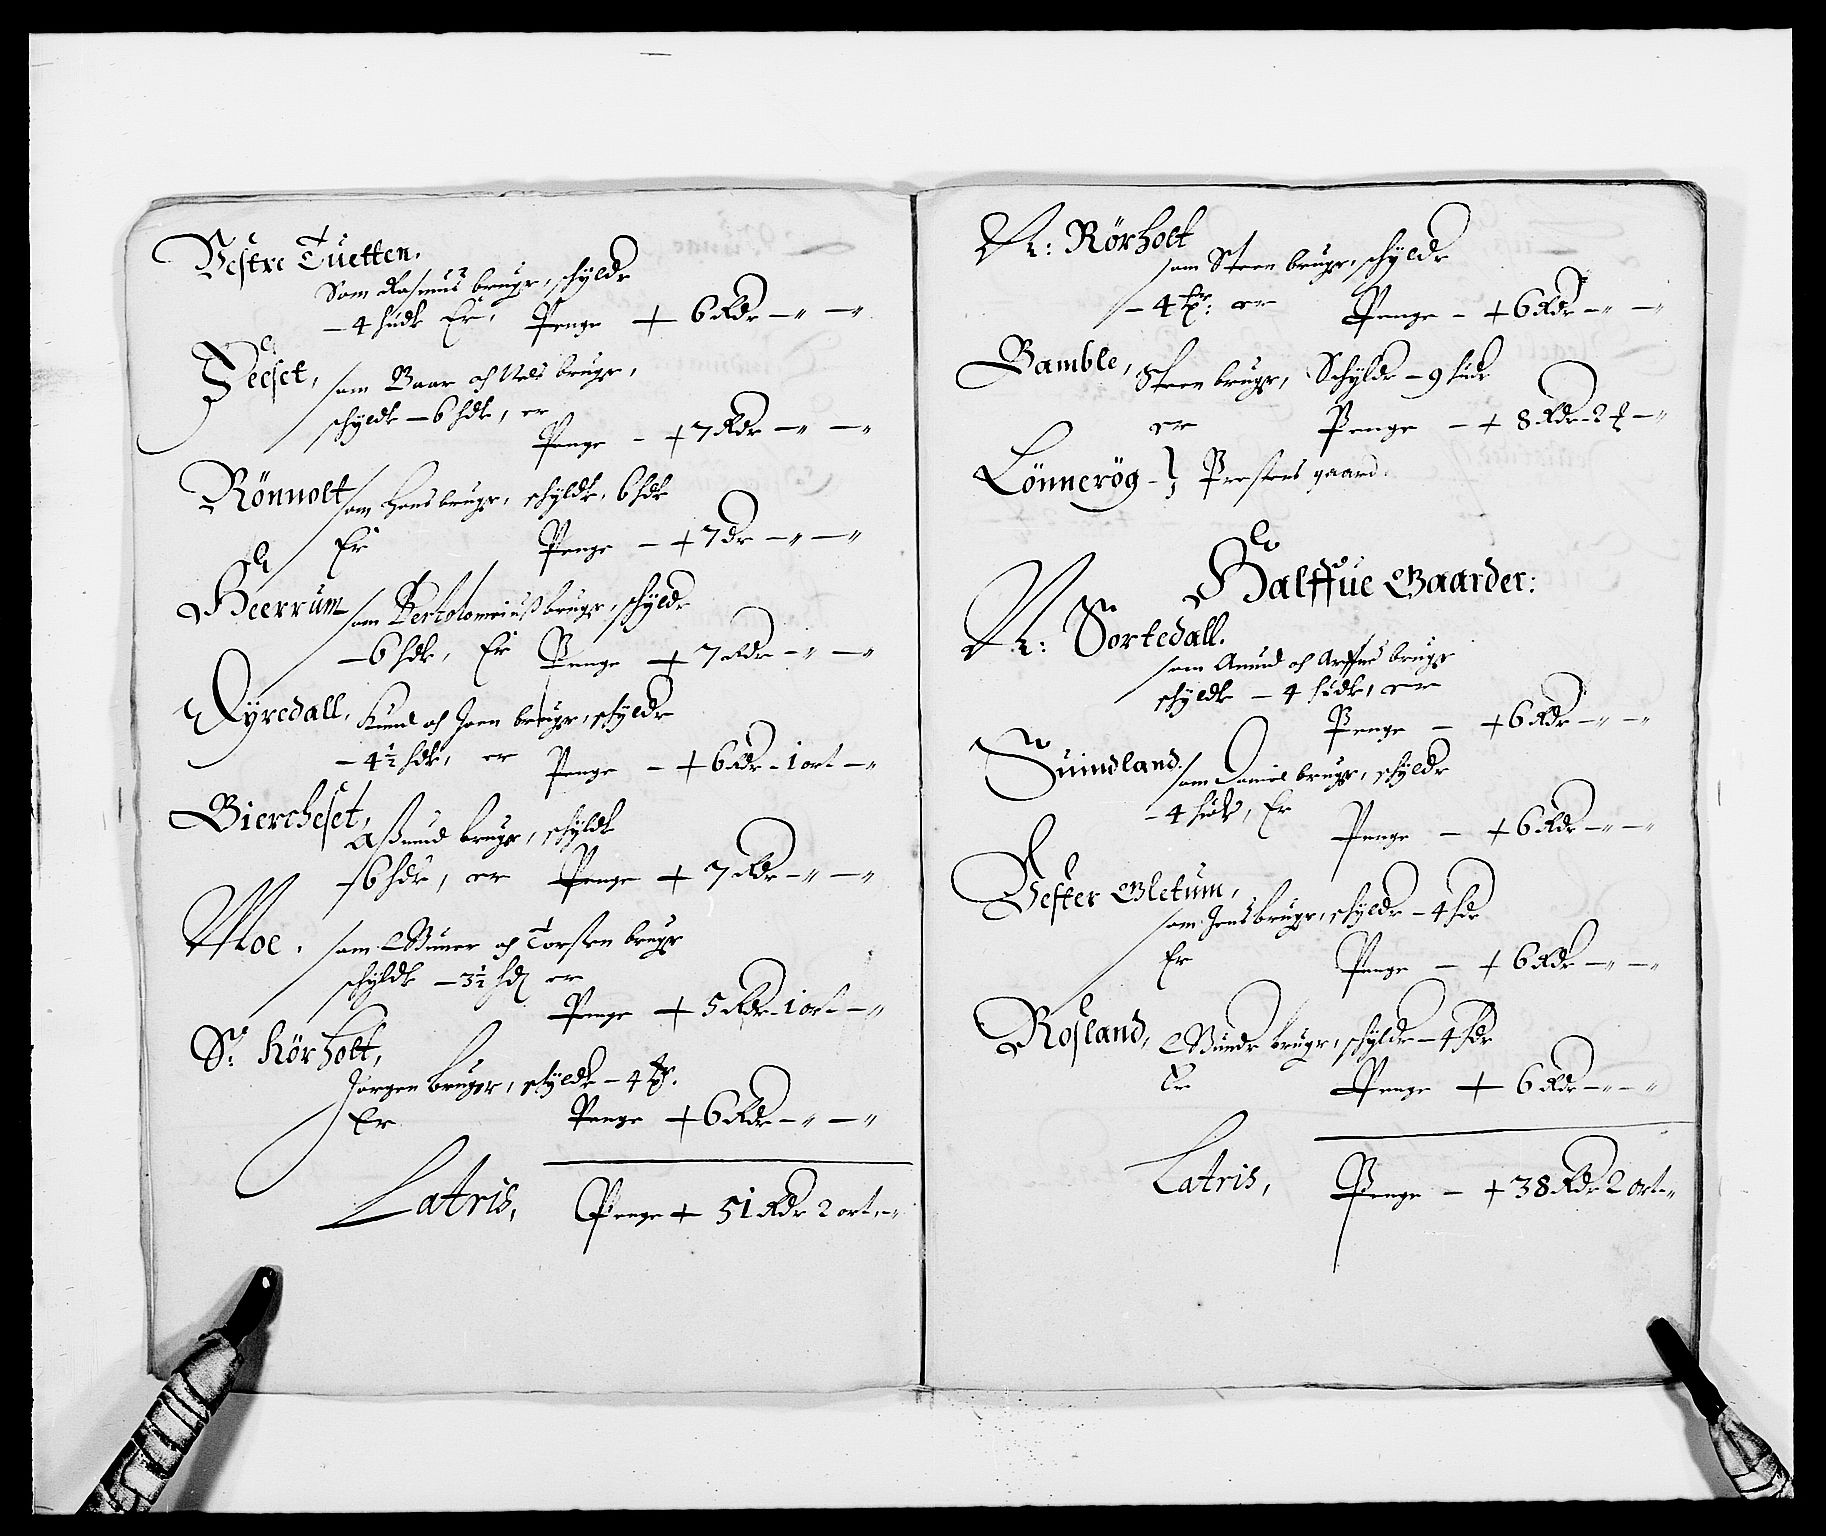 Vestre Tuetten,
Som Rasmus bruger, schylder
– 4 huder Er, Penge + 6 Rdr – „ – „
Feeset, som Baar och Nels bruger,
schylder – 6 hder, er
Penge – + 7 Rdr – „ – „
Rönnolt som Hans bruger, schylder, 6 hder
Er Penge – + 7 Dr – „ – „
Heerrum som Bertolomeiuss bruger, schylder
– 6 hder, Er Penge – + 7 Rdr – „ – „
Äyredall, Knud och Joen bruger, schylder
– 4½ hder, er Penge – + 6 Rdr – 1 ort – „
Biercheset,
Assmud bruger, schylder
– 6 hdr, er Penge + 7 Rdr – „ – „
Moe, som Gunner och Torsten bruger
schylder – 3½ hd er
Penge + 5 Rdr – 1 ort – „
Sr: Rörholt,
Jörgen bruger, schylder – 4
Er Penge + 6 Rdr – „ – „
Latris, Penge + 51 Rdr 2 ort – „
N: Rörholt
som Steen bruger, schylder
– 4 er Penge – + 6 Rdr – „ – „
Bamble, Steen bruger, Schylder – 9 hud
er Penge – + 8 Rdr – 2 – „
Lönnerög – Prestens gaard.
Halffue Gaarder:
N: Sortedall.
som Amund och Arffue bruger
schylder – 4 huder, er
Penge – + 6 Rdr – „ – „
Suindland. som Daniel bruger, schylder
– 4 huder, Er
Penge – + 6 Rdr – „ – „
Vester Gletum,
som Jens bruger, schylder – 4 hdr
Er Penge – + 6 Rdr – „ – „
Rosland, Gunder bruger, schylder – 4 hdr
Er Penge + 6 Rdr – „ – „
Latris, Penge – + 38 Rdr 2 ort – „